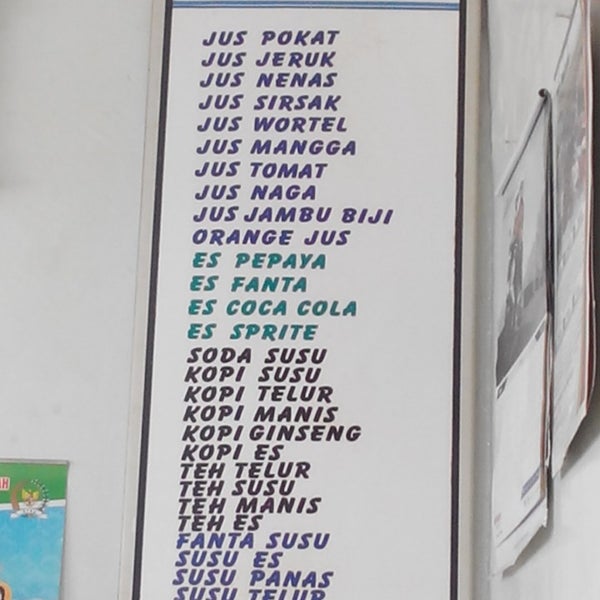 JUS POKAT
JUS JERUK
JUS NENAS
JUS SIRSAK
JUS WORTEL
JUS MANGGA
JUS TOMAT
JUS NAGA
JUS JAMBU BIJI
ORANGE JUS
ES PEPAYA
ES FANTA
ES COCA COLA
ES SPRITE
SODA SUSU
KOPI SUSU
KOPI TELUR
KOPI MANIS
KOPI GINSENG
KOPI ES
TEH TELUR
TEH SUSU
TEH MANIS
TEH ES
FANTA SUSU
SUSU ES
SUSU PANAS
SUSU TELUR